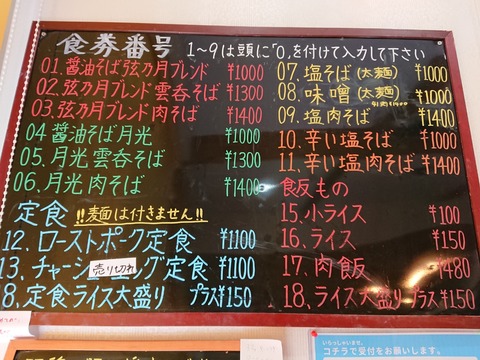 食券番号 1~9は頭に「0」を付けて入力して下さい
01.醤油そば弦乃月ブレンド ¥1000
02.弦乃月ブレンド雲呑そば ¥1300
03.弦乃月ブレンド肉そば ¥1400
04 醤油そば月光 ¥1000
05.月光雲呑そば ¥1300
06.月光肉そば ¥1400
定食 !!麺は付きません!!
12.ローストポーク定食 ¥1100
13.チャーシュ 売り切れ ング定食 ¥1100
18.定食ライス大盛り プラス¥150
07.塩そば(太麺) ¥1000
08.味噌(太麺) ¥1000
09.塩肉そば ¥1400
10.辛い塩そば ¥1000
11.辛い塩肉そば ¥1400
飯もの
15.小ライス ¥100
16.ライス ¥150
17.肉飯 ¥480
18.ライス大盛り プラス¥150
いらっしゃいませ。
コチラで受付をお願いします。